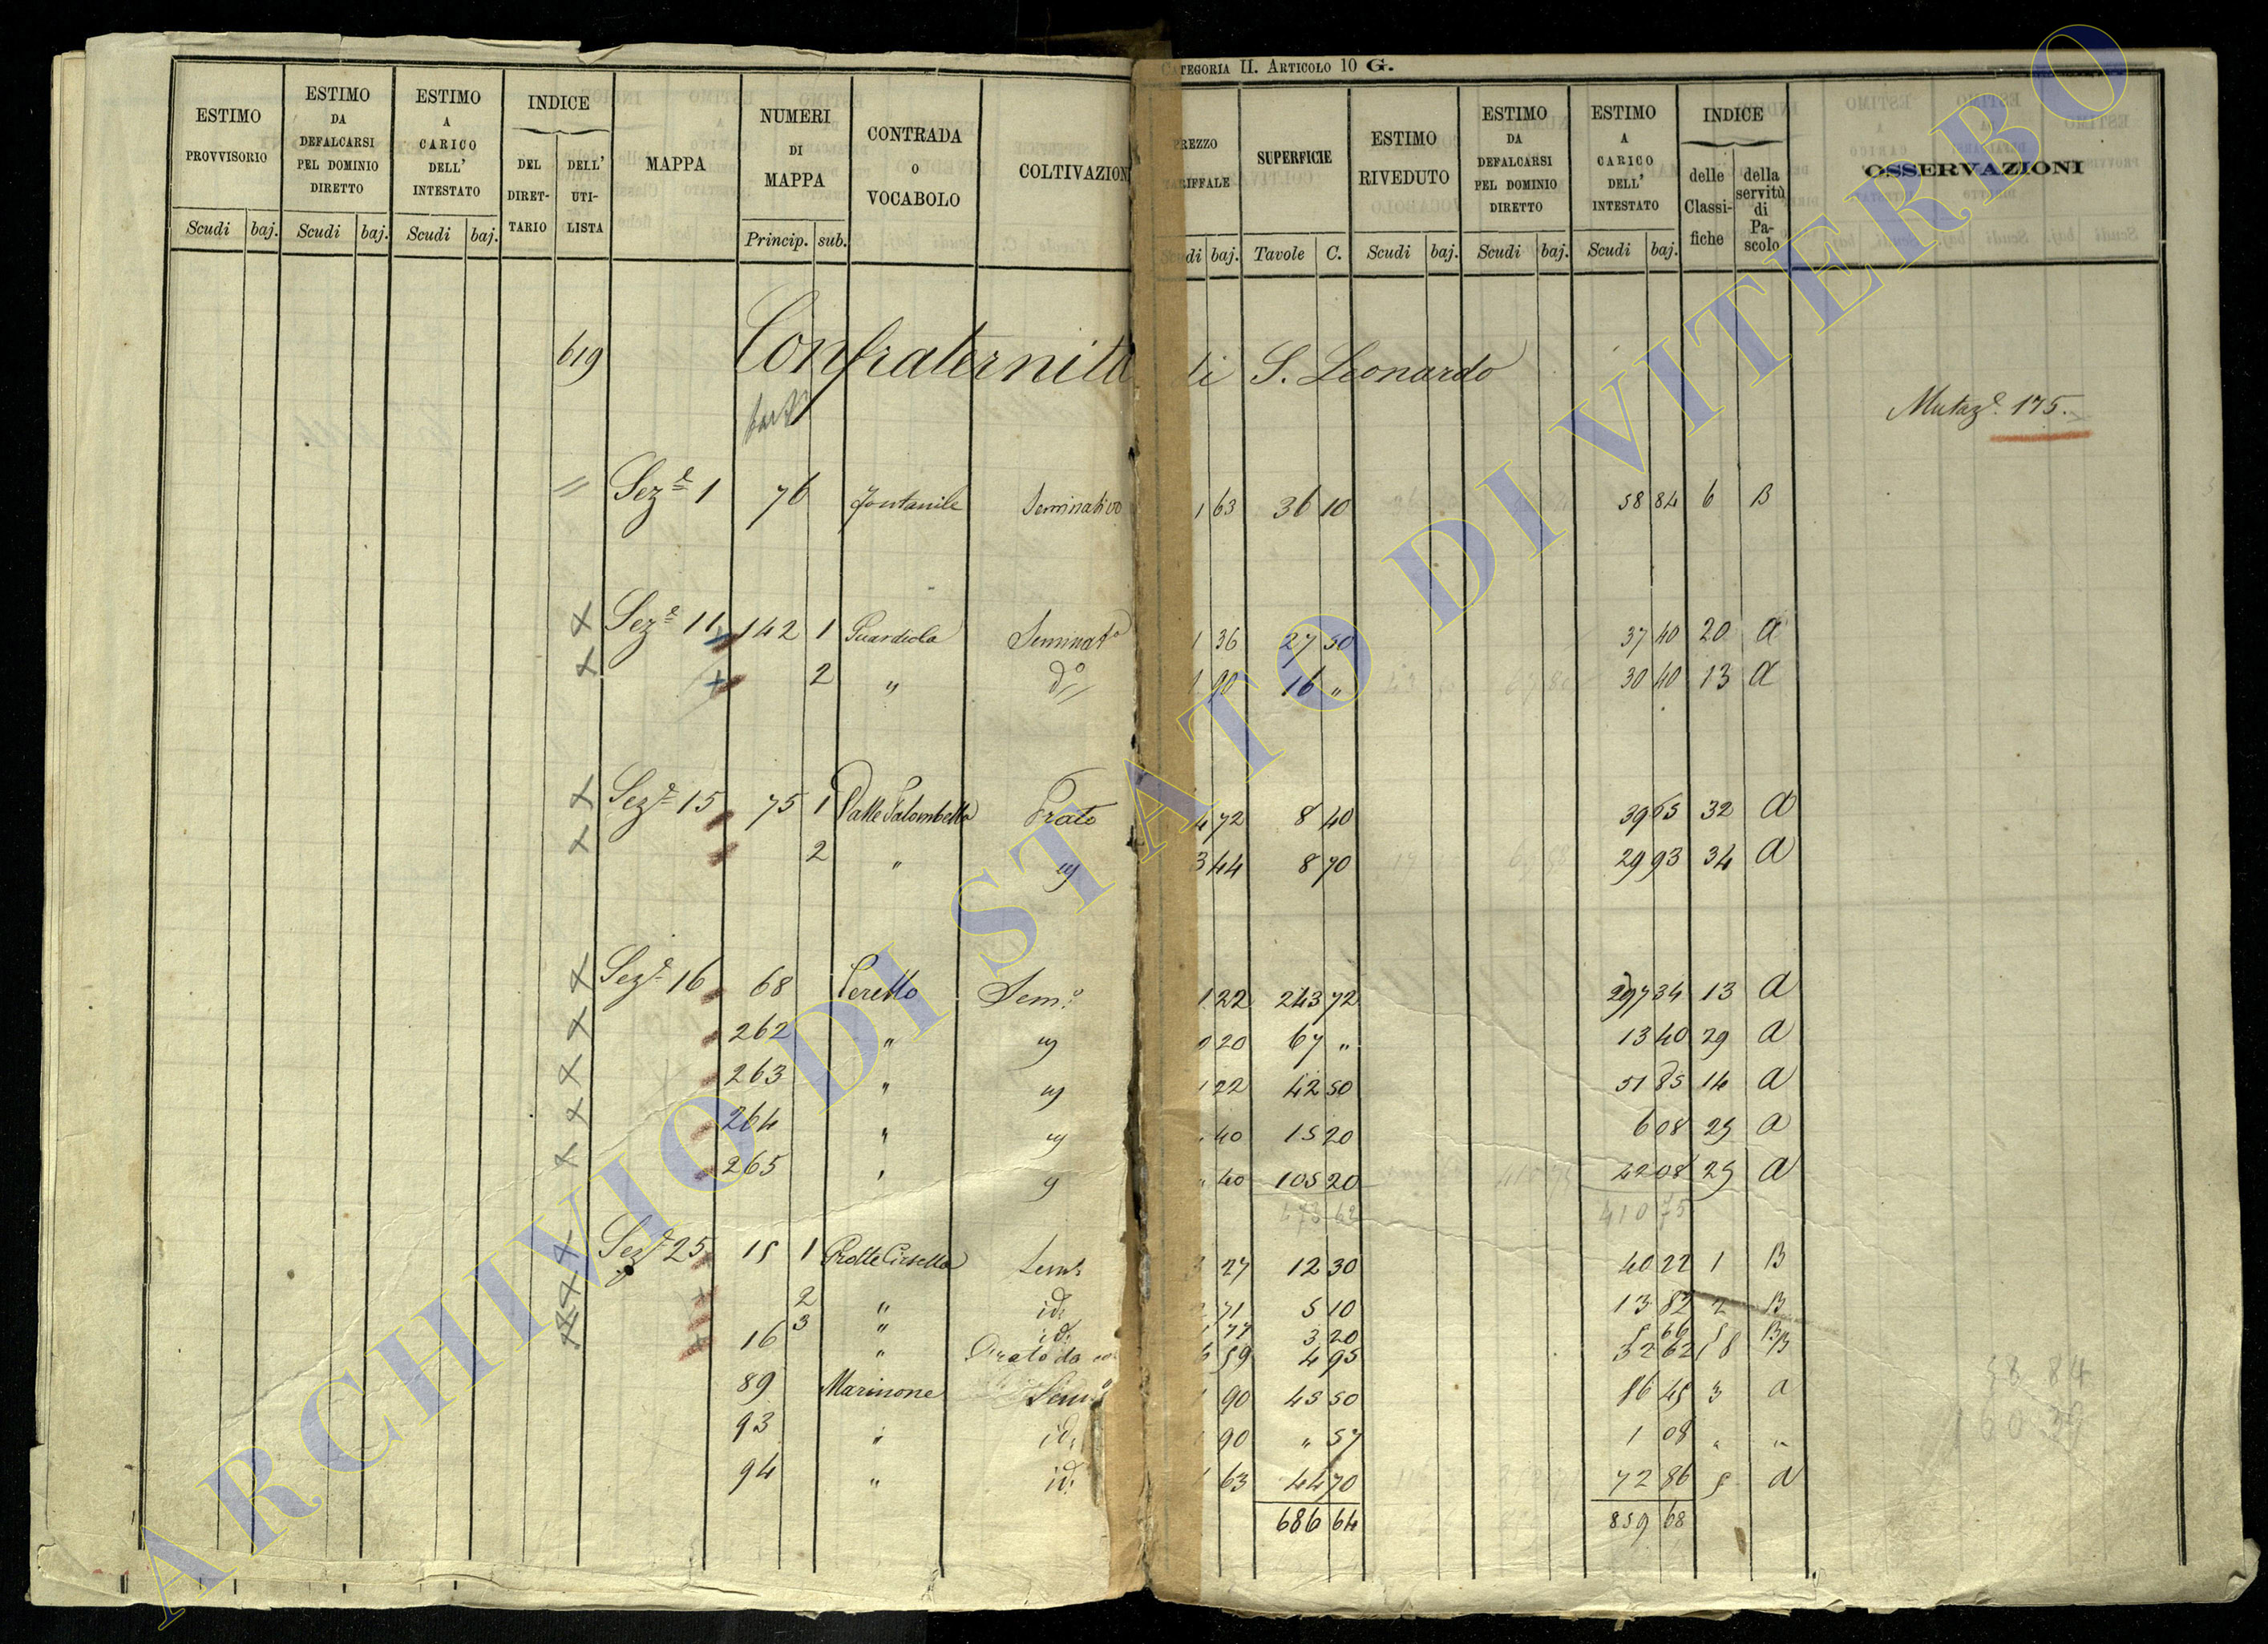 CATEGORIA II. ARTICOLO 10 G.
ESTIMO PROVVISORIO Scudi baj.
ESTIMO DA DEFALCARSI PEL DOMINIO DIRETTO Scudi baj.
ESTIMO A CARICO DELL' INTESTATO Scudi baj.
INDICE DEL DIRETTARIO DELL' UTILISTA
MAPPA
NUMERI DI MAPPA Princip. sub.
CONTRADA o VOCABOLO
COLTIVAZION
PREZZO TARIFFALE Scudi baj.
SUPERFICIE Tavole C.
ESTIMO RIVEDUTO Scudi baj.
ESTIMO DA DEFALCARSI PEL DOMINIO DIRETTO Scudi baj.
ESTIMO A CARICO DELL' INTESTATO Scudi baj.
INDICE delle Classifiche della servitù di Pascolo
OSSERVAZIONI
619 Confraternita di S. Leonardo
Mutaz.e 175.
Sez.e 1 76 Fontanile Seminativo 1 63 36 10 58 84 6 B
Sez.e 11 142 1 Guardiola Seminat.o 1 36 27 50 37 40 20 A
2 " d.o 1 90 16 " 30 40 13 A
Sez.e 15 75 1 Valle Palombella Prato 4 72 8 40 39 65 32 A
2 " " 3 44 8 70 29 93 34 A
Sez.e 16 68 Ceretto Sem.o 1 22 243 72 297 34 13 A
262 " " 20 67 " 13 40 29 A
263 " " 1 22 42 50 51 85 14 A
264 " " " 40 15 20 6 08 25 A
265 " " " 40 105 20 42 08 25 A
473 62 410 75
Sez.e 25 15 1 Sem.o 3 27 12 30 40 22 1 B
2 " id. 2 71 5 10 13 82 2 B
3 " id. 1 77 3 20 5 66 5 B
16 " Prato da 6 59 4 95 32 62 18 B
89 Marinone Sem.o 1 90 45 50 86 45 3 A
93 " id. 1 90 " 57 1 08 " "
94 " id. 1 63 44 70 72 86 5 A
686 64 859 68
58 84
60 39
ARCHIVIO DI STATO DI VITERBO